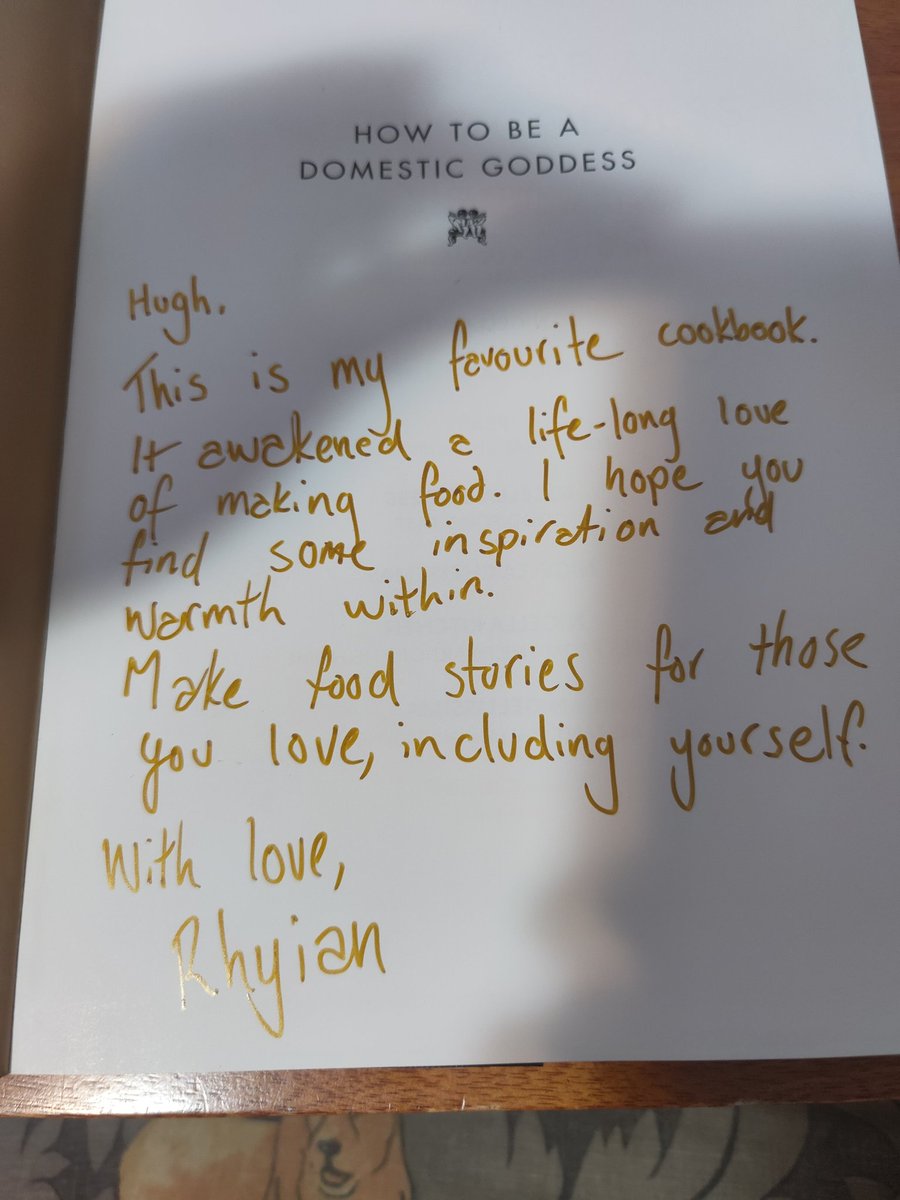 HOW TO BE A
DOMESTIC GODDESS
Hugh.
This is my favourite cookbook.
It awakened a life-long love
of making food. I hope you
find some inspiration and
warmth within.
Make food stories for those
you love, including yourself.
With love,
Rhyian